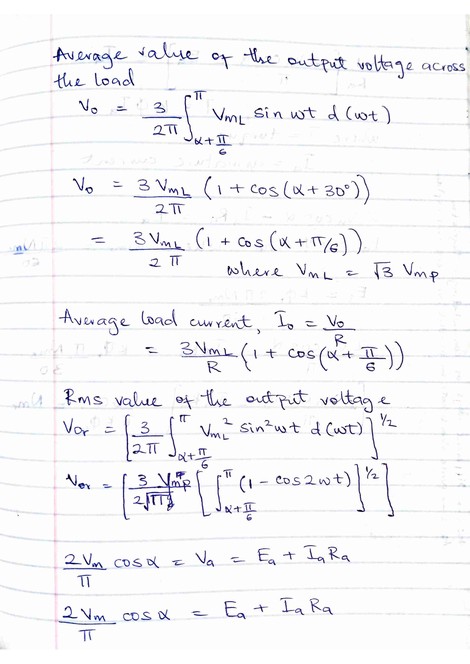 Average value of the output voltage across
the load
V₀ = 3/2π ∫_{α+π/6}^{π} V_{mL} sin wt d(wt)
V₀ = 3V_{mL}/2π (1 + cos(α+30°))
= 3V_{mL}/2π (1 + cos(α+π/6))
where V_{mL} = √3 V_{mp}
Average load current, I₀ = V₀/R
= 3V_{mL}/R (1 + cos(α+π/6))
Rms value of the output voltage
V_{or} = [3/2π ∫_{α+π/6}^{π} V_{mL}² sin²wt d(wt)]^{1/2}
V_{or} = [3V_{mp}/2√π [∫_{α+π/6}^{π} (1 - cos2wt)]^{1/2}]
2V_m/π cosα = V_a = E_a + I_a R_a
2V_m/π cosα = E_a + I_a R_a